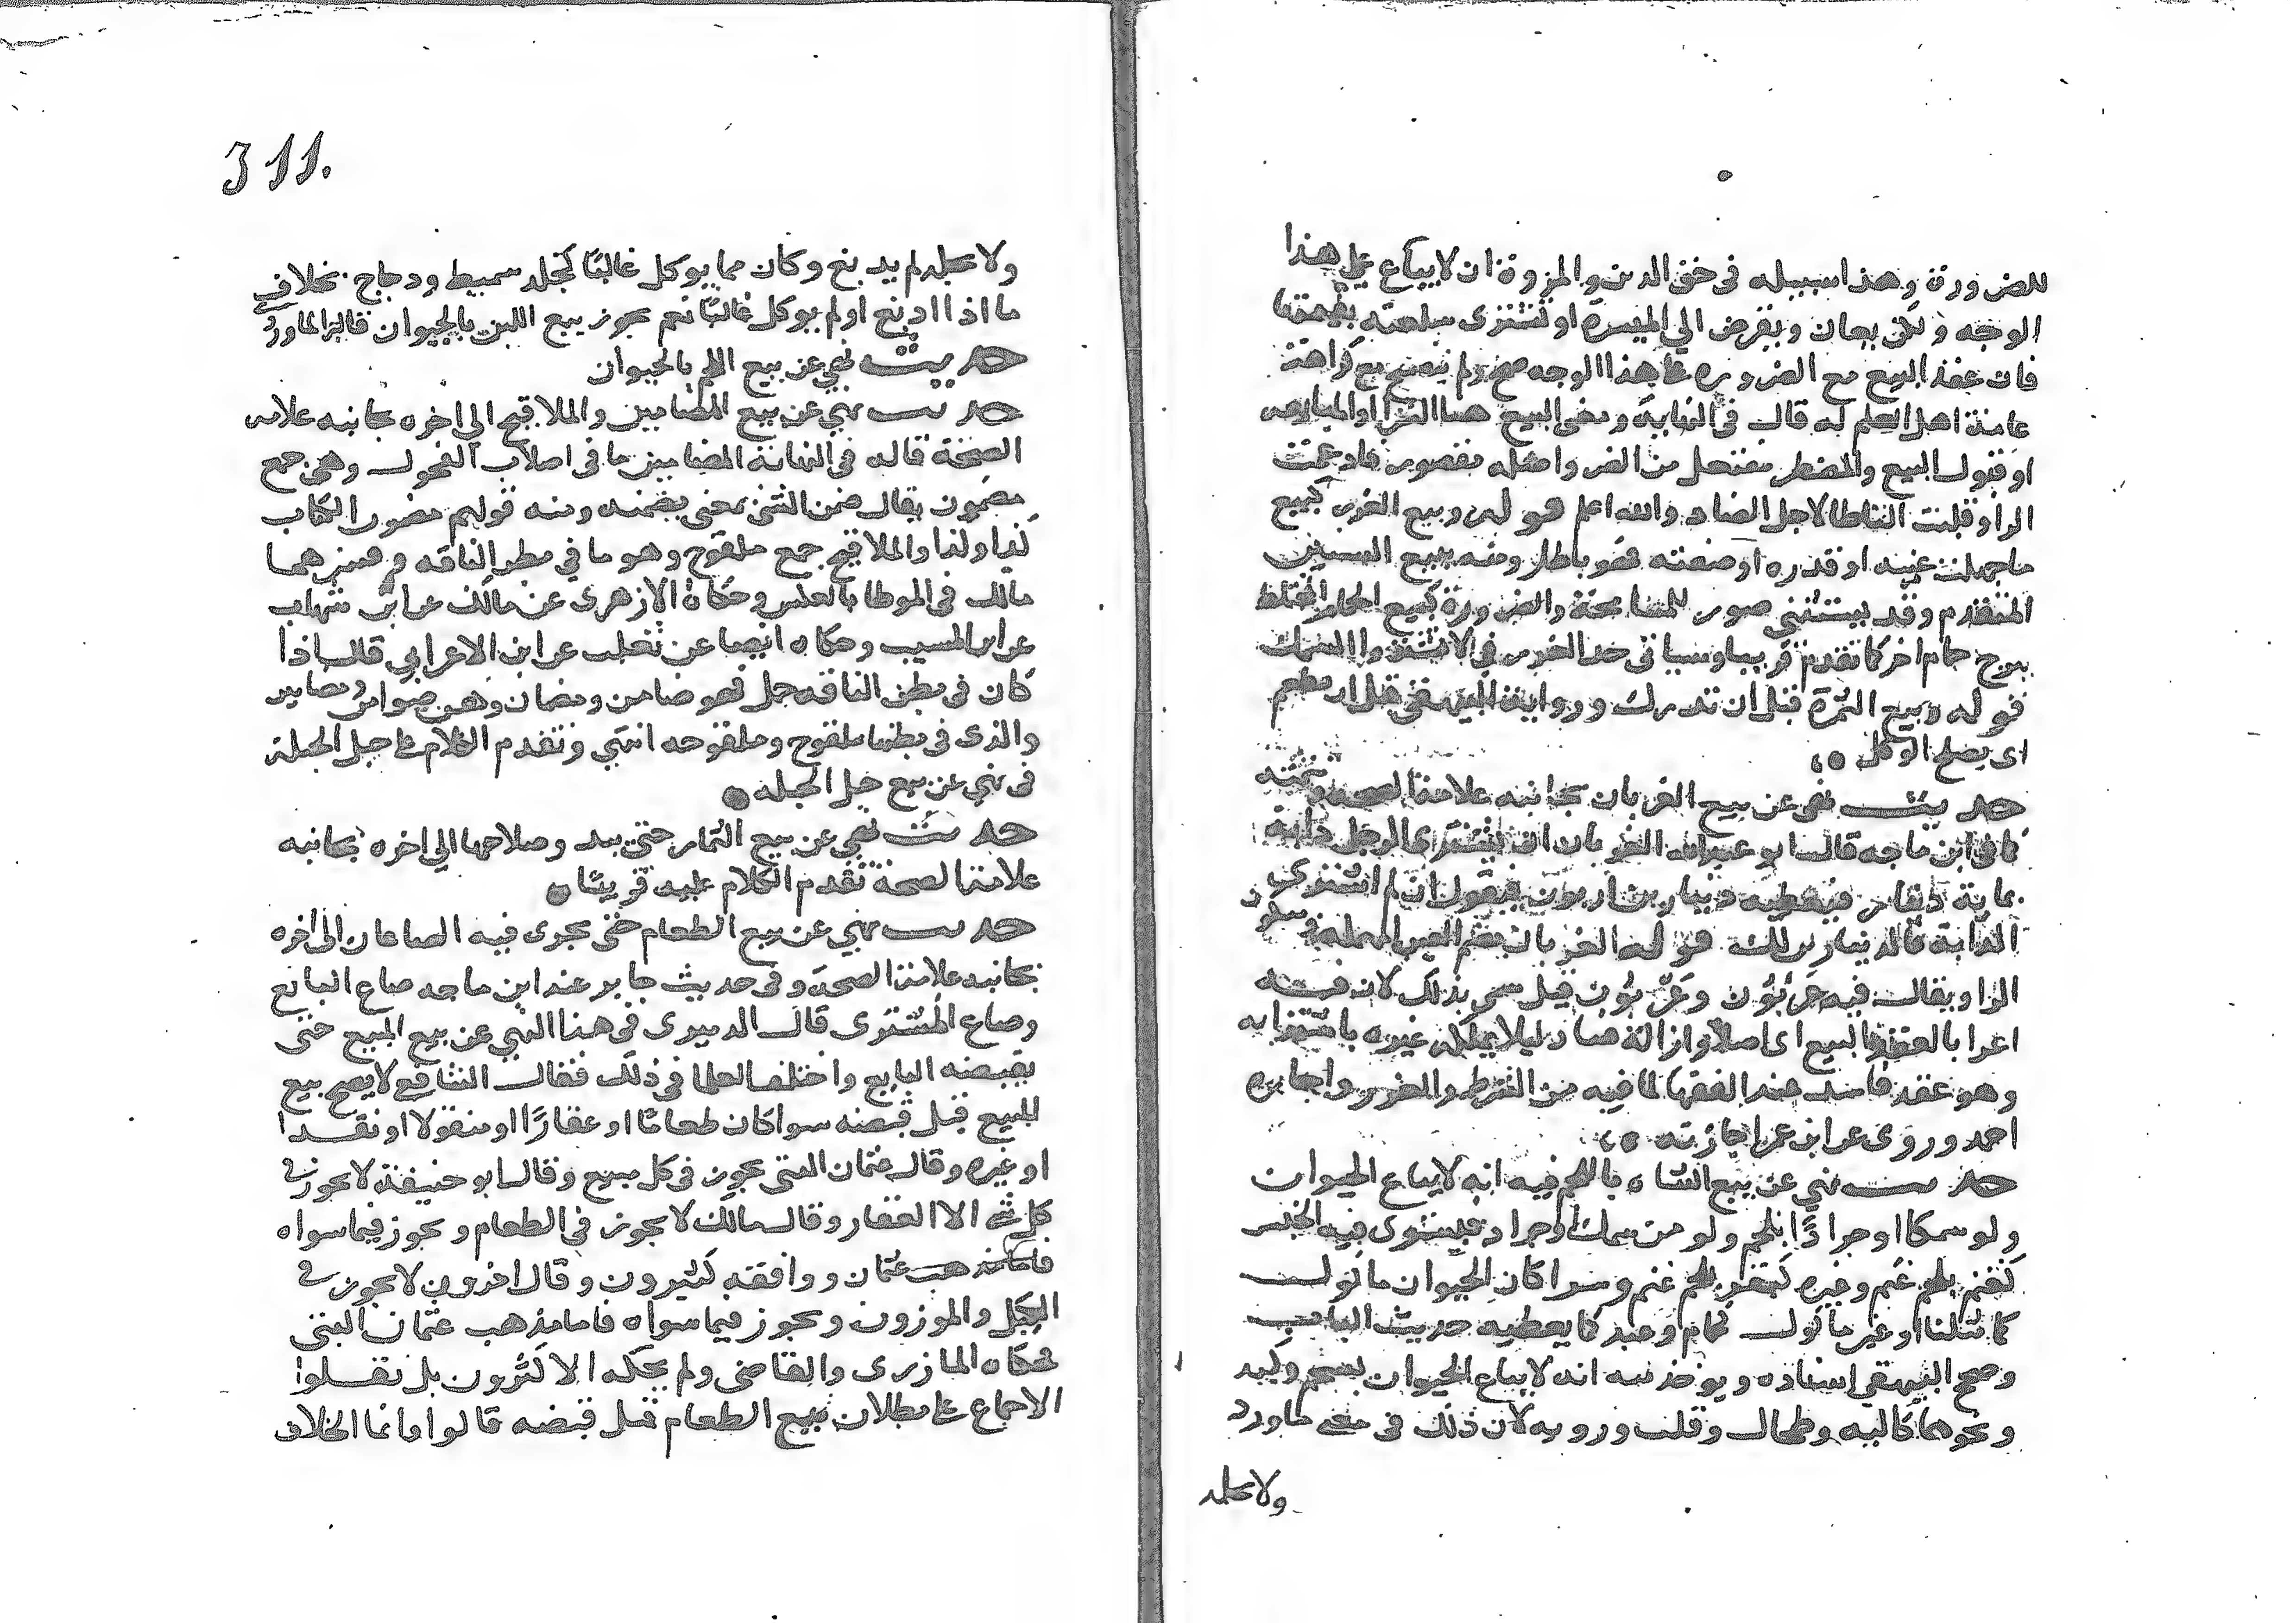 للضرورة وهذا سبيله في حق الدين والمروة ان لا يباع على هذا
الوجه ولكن يعان ويقرض الي الميسرة او تشترى سلعته بقيمتها
فان عقد البيع مع الضروره على هذا الوجه صح ولم يفسخ مع كراهة
عامة اهل العلم له قال في النهاية ومعنى البيع هنا الشرا او المبايعه
او قبول البيع والمضطر مفتعل من الضر واصله مضصرر فادغمت
الرا وقلبت التا طا لاجل الضاد والله اعلم قوله وبيع الغرر كبيع
ما جهلت عينه او قدره او صفته فهو باطل ومنه بيع السنين
المتقدم وقد يستثنى صور للمسامحة والضرورة كبيع الحمام المختلط
ببرج حمام اخر كما تقدم قريبا وسياتي حد الغرر في لا تشتروا السمك
قوله وبيع الثمرة قبل ان تدرك ورواية البيهقي قبل ان تطعم
اى يصلح للاكل
حديث نهى عن بيع العربان بجانبه علامة الصحه وتتمته
كما في ابن ماجه قال ابو عبد الله العربان ان يشترى الرجل دابة
بماية دينار فيعطيه دينارين اربون فيقول ان لم اشترى
الدابة فالدينارين لك قوله العربان بضم العين المهملة وسكون
الرا ويقال فيه عربون وعربون قيل سمى بذلك لان فيه
اعرابا لعقد البيع اى اصلاحا وازالة فساد ليلا يملكه غيره باشترايه
وهو عقد فاسد عند الفقها لما فيه من الشرط والغرر واجازه
احمد وروى عن ابن عمر اجازته
حديث نهي عن بيع الشاه باللحم فيه انه لا يباع الحيوان
ولو سمكا او جرادًا بلحم ولو من سمك او جراد فيستوى فيه الجنس
كغنم بلحم غنم وغيره كبقر بلحم غنم وسوا كان الحيوان ماكول
كما مثلنا او غير ماكول كحمام وعبد كما يعطيه حديث الباب
وصحح البيهقي اسناده ويوخذ منه انه لا يباع الحيوان بشحم وكبد
ونحوهما كاليه وطحال وقلب وريه لان ذلك في معنى ما ورد
ولا بجلد
311.
ولا بجلد لم يدبغ وكان مما يوكل غالبًا كجلد سميط ودجاج بخلاف
ما اذا ادبغ او لم يوكل غالبًا نعم يجوز بيع اللبن بالحيوان قاله الماوردى
حديث نهي عن بيع اللحم بالحيوان
حديث نهي عن بيع المضامين والملاقيح الي اخره بجانبه علامه
الصحة قال في النهاية المضامين ما في اصلاب الفحول وهي جمع
مضمون يقال ضمن الشئ بمعنى تضمنه ومنه قولهم مضمون الكتاب
كذا وكذا والملاقيح جمع ملقوح وهو ما في بطن الناقه وفسرهما
مالك في الموطا بالعكس وحكاه الازهرى عن مالك عن ابن شهاب
عن ابن المسيب وحكاه ايضا عن ثعلب عن ابن الاعرابي قال اذا
كان في بطن الناقه حمل فهو ضامن ومضمان وهن ضوامن ومضامين
والذى في بطنها ملقوح وملقوحه انتهي وتقدم الكلام على حبل الحبلة
في نهي عن بيع حبل الحبله
حديث نهي عن بيع الثمار حتى يبدو صلاحها الي اخره بجانبه
علامة الصحة تقدم الكلام عليه قريبًا
حديث نهي عن بيع الطعام حتى يجرى فيه الصاعان الى اخره
بجانبه علامة الصحة وفي حديث جابر عند ابن ماجه صاع البائع
وصاع المشترى قال الدميرى في هذا النهي عن بيع المبيع حتى
يقبضه البايع واختلف العلما في ذلك فقال الشافعي لا يصح بيع
المبيع قبل قبضه سوا كان طعامًا او عقارًا او منقولا او نقدا
او غيره وقال عثمان البتى يجوز في كل مبيع وقال ابو حنيفة لا يجوز في
كل شي الا العقار وقال مالك لا يجوز في الطعام ويجوز فيما سواه
فاما مذهب عثمان ووافقه كثيرون وقال اخرون لا يجوز في
المكيل والموزون ويجوز فيما سواه فاما مذهب عثمان البتى
فحكاه المازرى والقاضى ولم يحكه الاكثرون بل نقلوا
الاجماع على بطلان بيع الطعام قبل قبضه قالوا وانما الخلاف